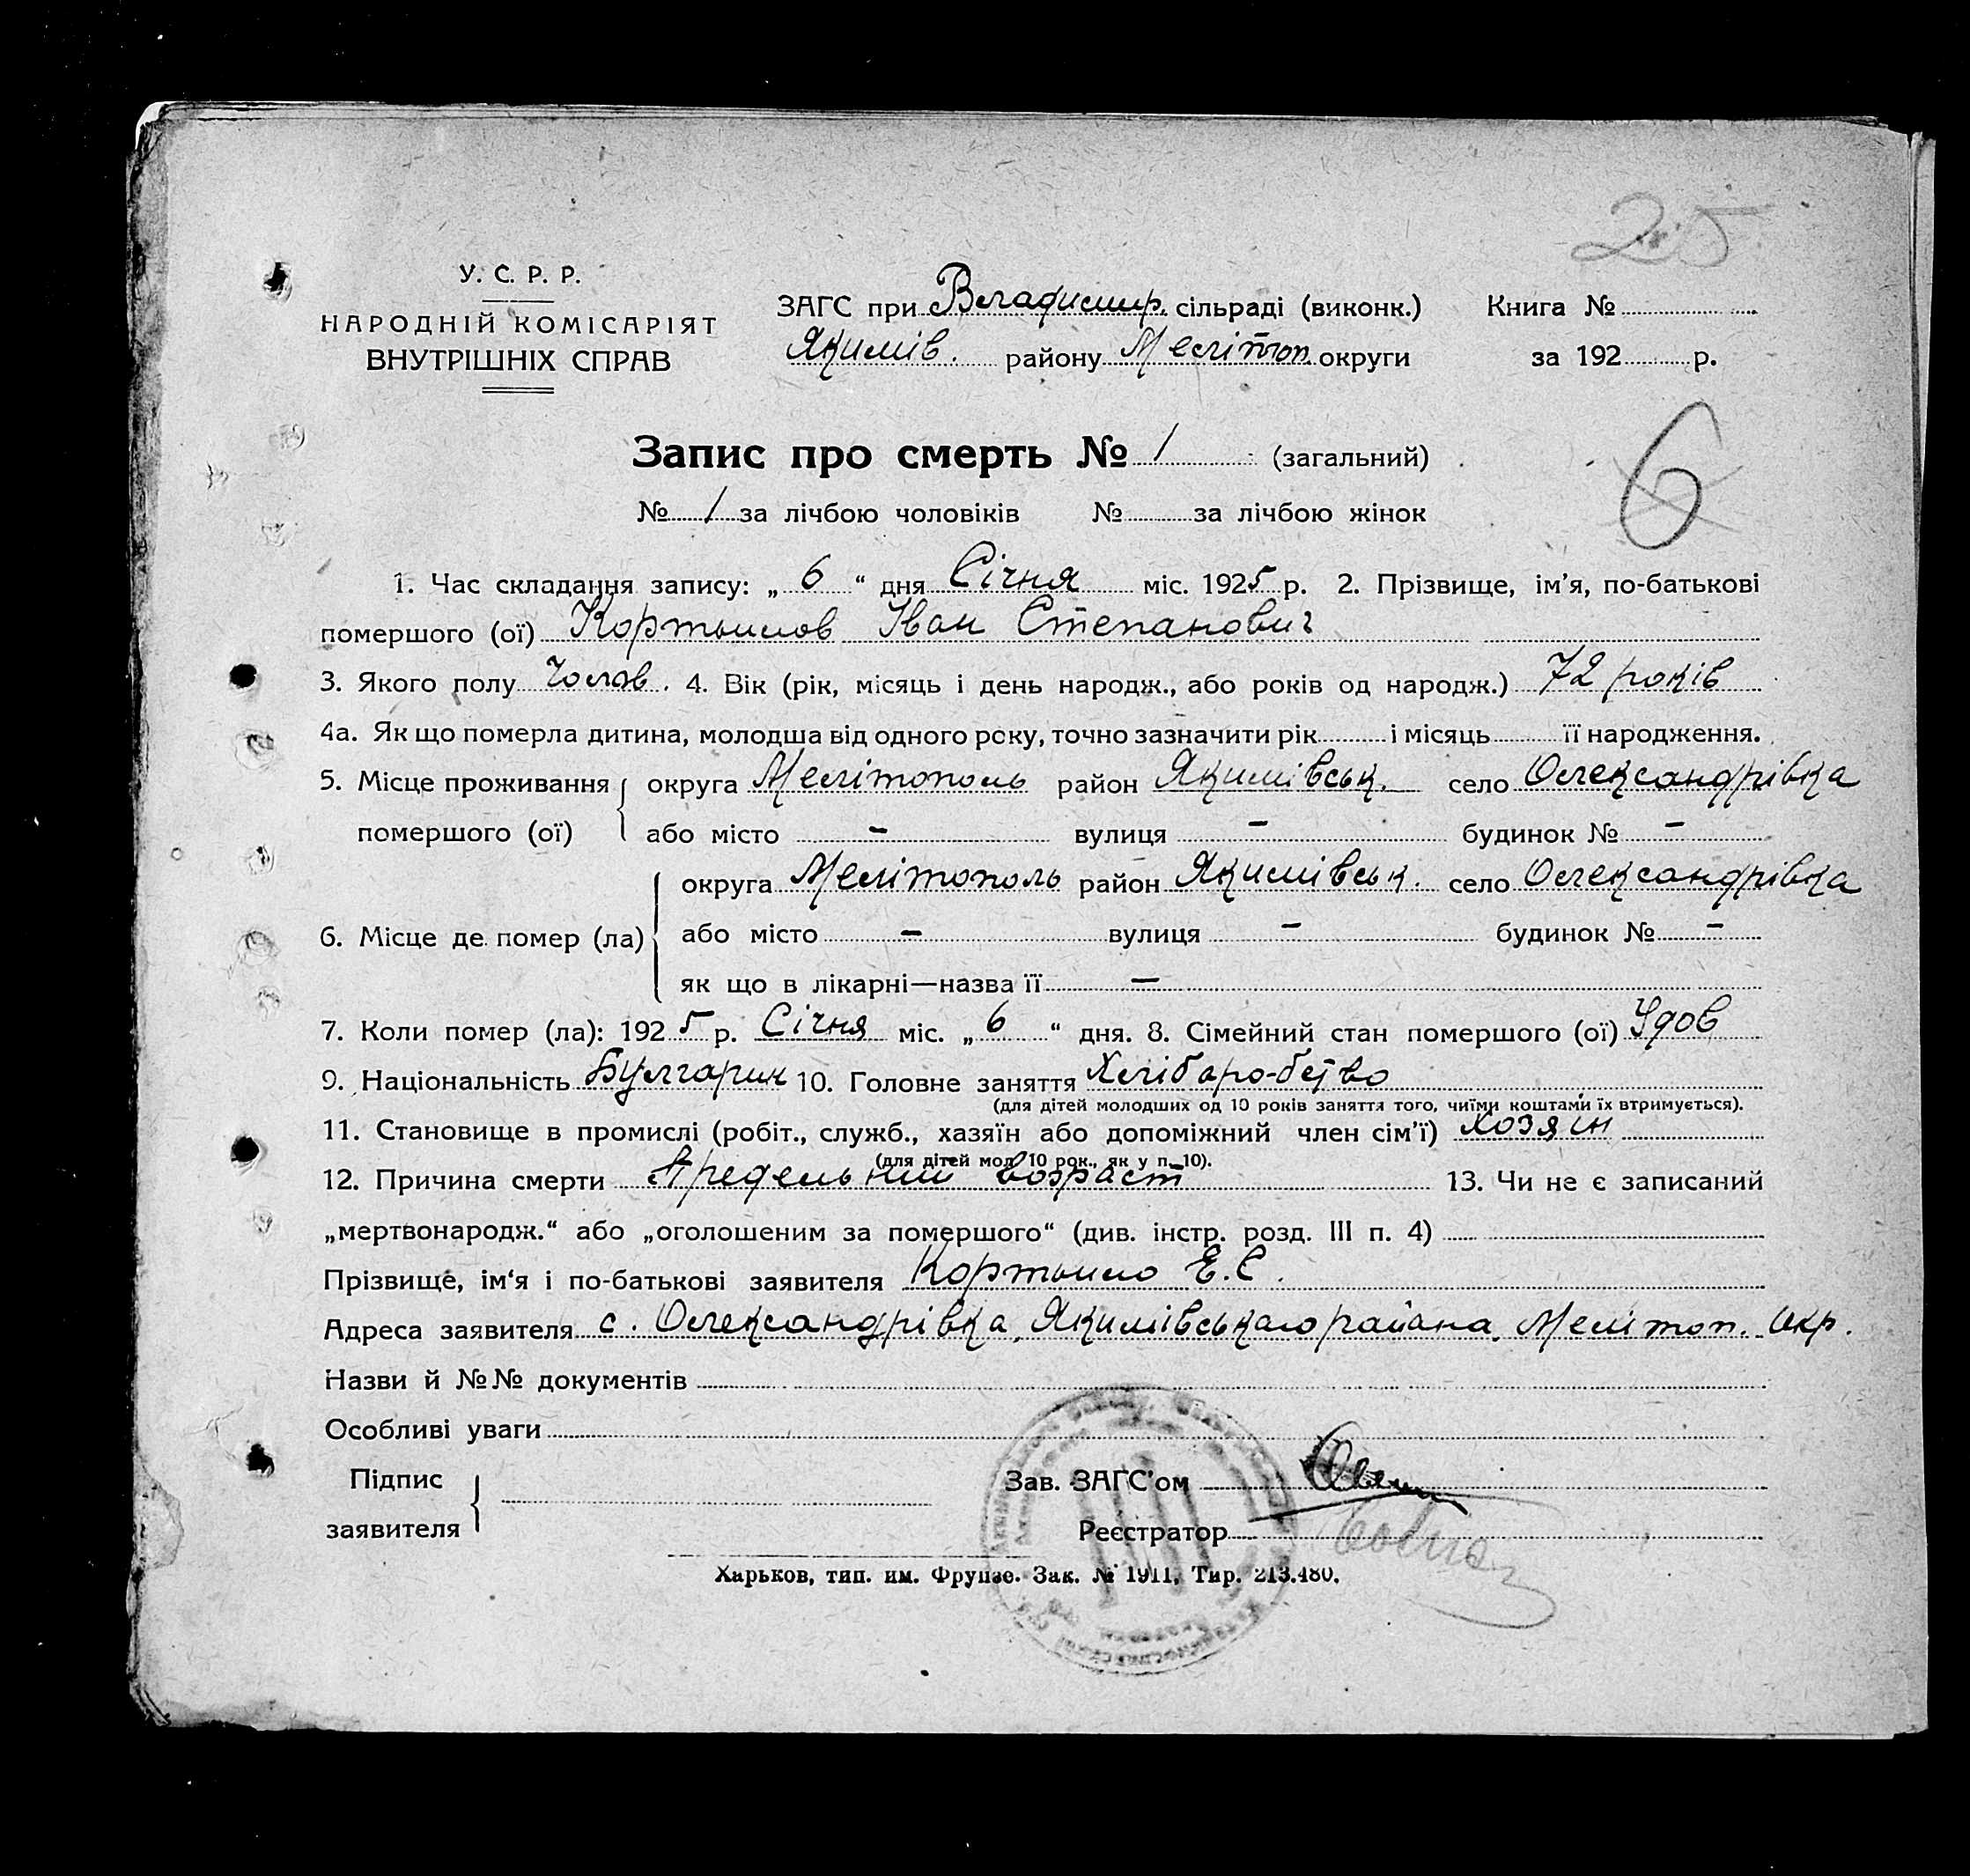 25
У. С. Р. Р.
НАРОДНІЙ КОМІСАРІЯТ
ВНУТРІШНІХ СПРАВ
ЗАГС при Владимир. сільраді (виконк.)
Якимів. району Мелітоп. округи
Книга №
за 192 р.
Запис про смерть № 1 (загальний)
№ 1 за лічбою чоловіків № за лічбою жінок
6
1. Час складання запису: „ 6 “ дня Січня міс. 1925 р. 2. Прізвище, ім'я, по-батькові
помершого (ої) Кортышов Іван Степанович
3. Якого полу Чолов. 4. Вік (рік, місяць і день народж., або років од народж.) 72 років
4а. Як що померла дитина, молодша від одного року, точно зазначити рік і місяць її народження.
5. Місце проживання округа Мелітополь район Якимівськ. село Олександрівка
помершого (ої) або місто – вулиця – будинок № –
округа Мелітополь район Якимівськ. село Олександрівка
6. Місце де помер (ла) або місто – вулиця – будинок № –
як що в лікарні—назва її –
7. Коли помер (ла): 1925 р. Січня міс. „ 6 “ дня. 8. Сімейний стан помершого (ої) Удов
9. Національність Булгарин 10. Головне заняття Хлібаро-бство
(для дітей молодших од 10 років заняття того, чиїми коштами їх втримується).
11. Становище в промислі (робіт., служб., хазяїн або допоміжний член сім'ї) Хозяін
(для дітей мол. 10 рок., як у п. 10).
12. Причина смерти Предельний возраст 13. Чи не є записаний
„мертвонародж.“ або „оголошеним за помершого“ (див. інстр. розд. III п. 4)
Прізвище, ім'я і по-батькові заявителя Кортышо Е. С.
Адреса заявителя с. Олександрівка, Якимівського района, Мелітоп. Окр.
Назви й №№ документів
Особливі уваги
Підпис
заявителя
Зав. ЗАГС'ом
Реєстратор
Харьков, тип. им. Фрунзе. Зак. № 1911. Тир. 213.480.